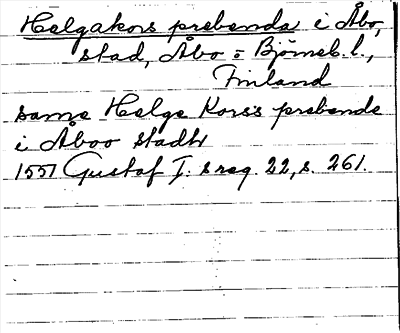 Helgakors prebenda i Åbo,
stad, Åbo o Björneb. l.,
Finland
samme Helge Kors's prebende
i Åboo stadh
1557 Gustaf I:s reg. 22, s. 261.